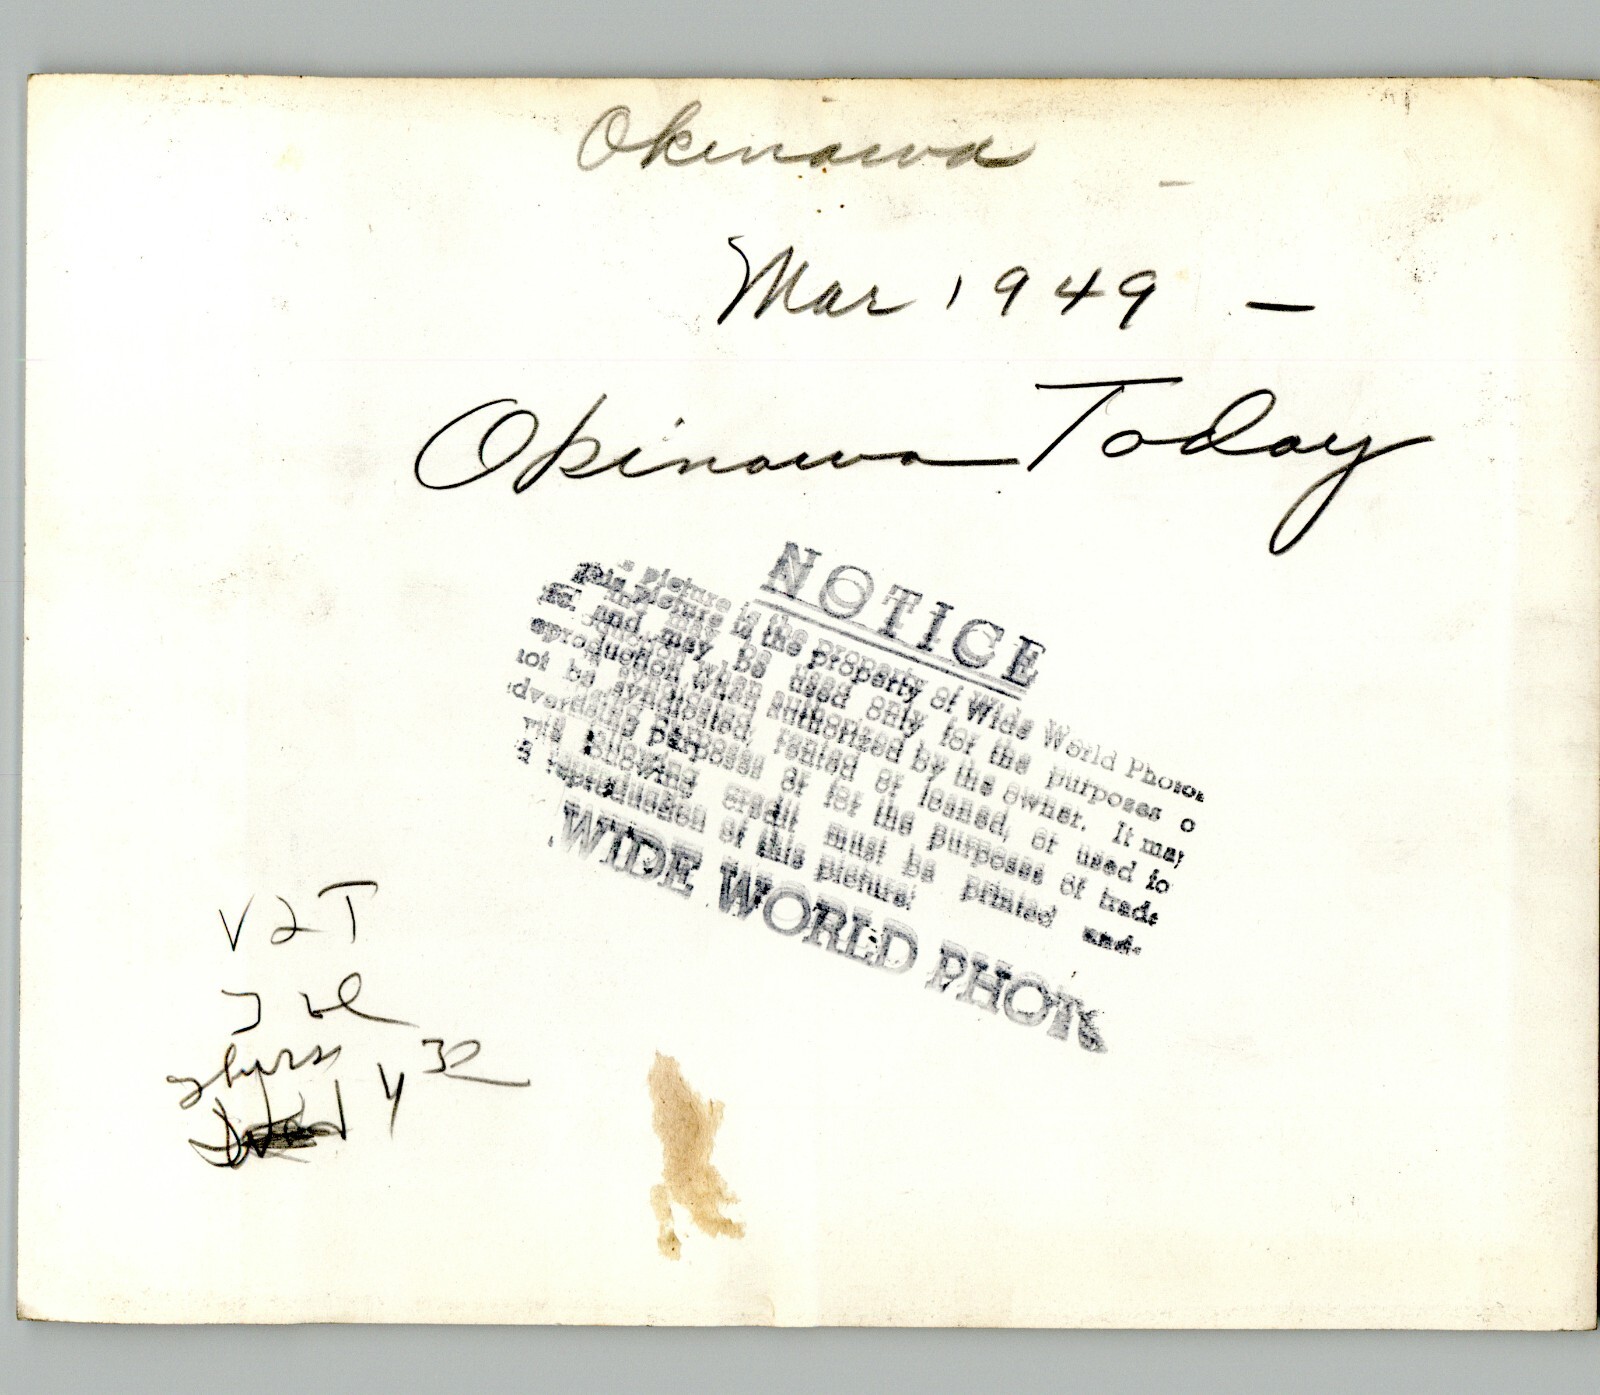 Okinawa
Mar 1949 —
Okinawa Today
NOTICE
This picture is the property of Wide World Photos
and may be used only for the purposes o
eproduction when authorized by the owner. It may
not be syndicated, rented or loaned, or used fo
dvertising purposes or for the purposes of trade
the following credit must be printed and
a reproduction of this picture:
WIDE WORLD PHOTOS
V2T
4 32